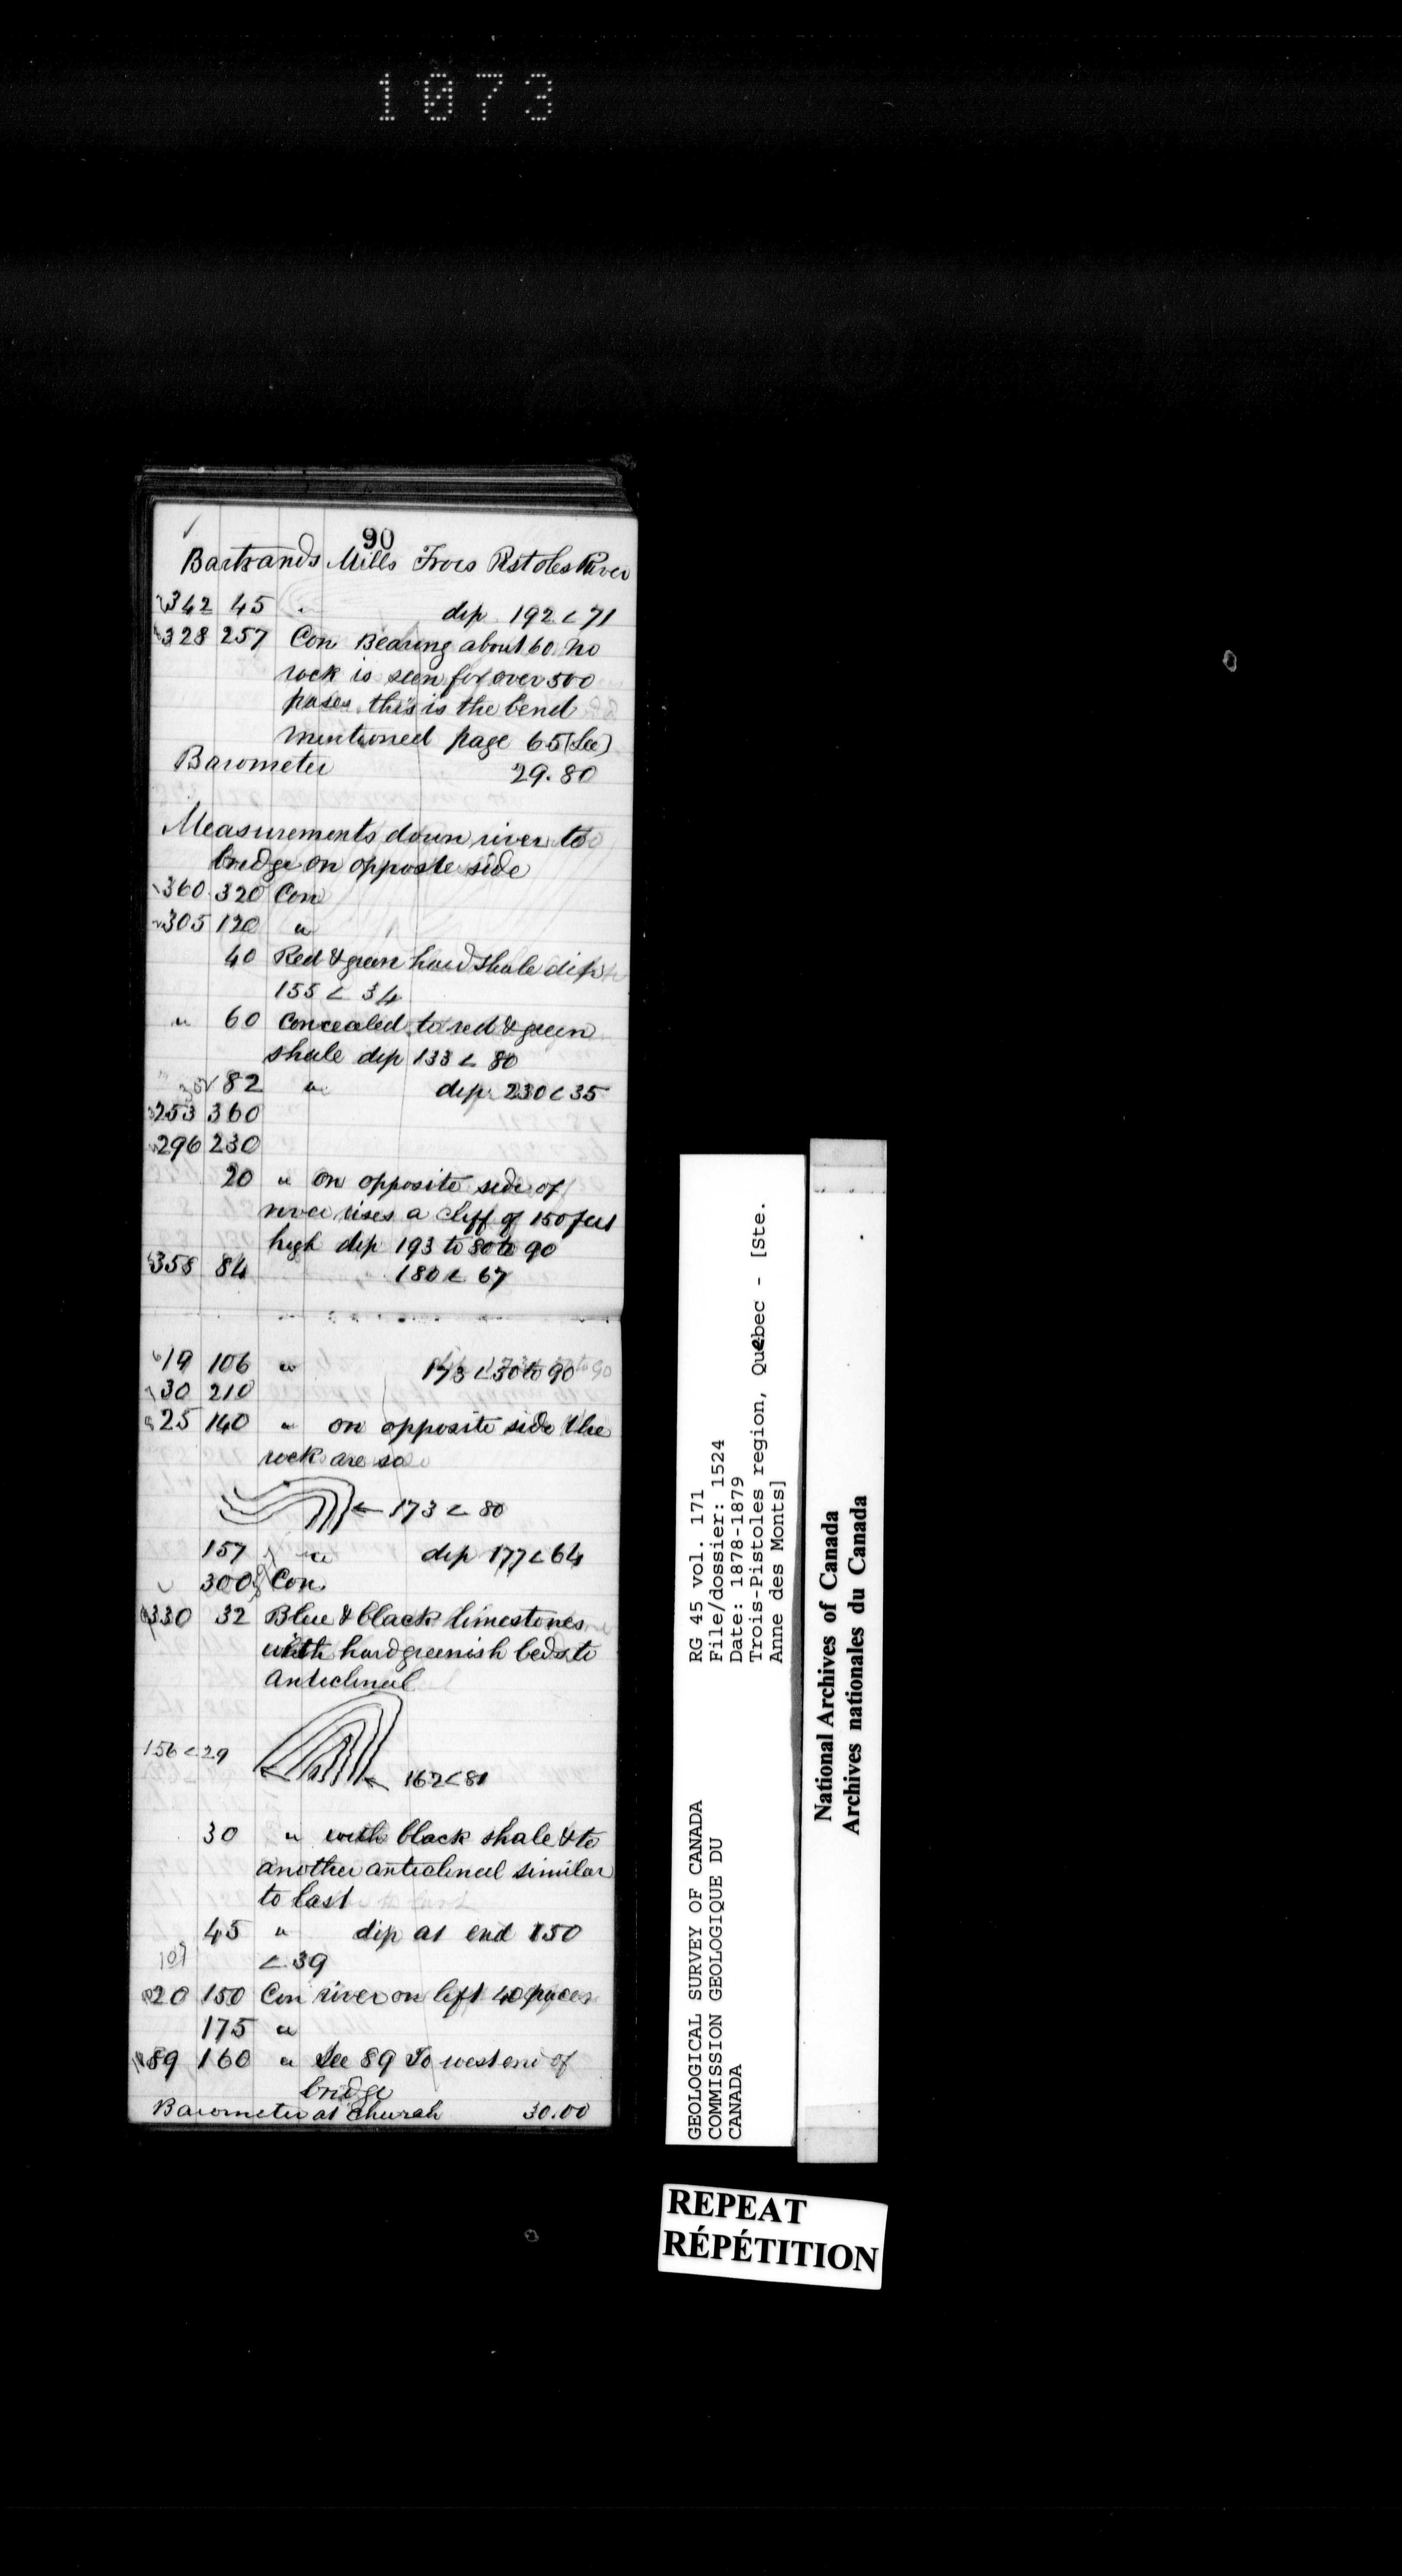 1073
90
Bartrands Mills Trois Pistoles River
342 45 " dip 192 < 71
328 257 Con Bearing about 60 no
rock is seen for over 500
pases this is the bend
mentioned page 65 (See)
Barometer 29.80
Measurements down river to
bridge on opposite side
360 320 Con
305 120 "
40 Red & green hard shale dip
155 < 34
" 60 Concealed to red & green
shale dip 133 < 80
82 " dip 230 < 35
253 360
296 230
20 " on opposite side of
river rises a cliff of 150 feet
high dip 193 to 80 to 90
358 84 180 < 67
19 106 " 173 < 50 to 90
30 210
25 140 " on opposite side the
rock are so
← 173 < 80
157 " dip 177 < 64
300 Con
330 32 Blue & black limestones
with hard greenish beds to
anticlineal
156 < 29
162 < 81
30 " with black shale & to
another anticlineal similar
to last
45 " dip at end 150
107 < 39
20 150 Con river on left 40 paces
175 "
89 160 " See 89 To west end of
bridge
Barometer at Church 30.00
RG 45 vol. 171
File/dossier: 1524
Date: 1878-1879
Trois-Pistoles region, Quebec - [Ste.
Anne des Monts]
GEOLOGICAL SURVEY OF CANADA
COMMISSION GEOLOGIQUE DU
CANADA
National Archives of Canada
Archives nationales du Canada
REPEAT
RÉPÉTITION